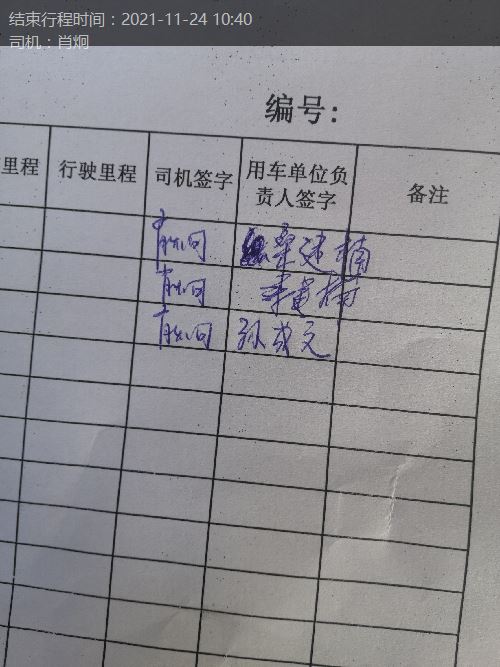 结束行程时间：2021-11-24 10:40
司机：肖炯
编号：
里程 行驶里程 司机签字 用车单位负责人签字 备注
肖炯 桑建楠
肖炯
肖炯 孙成元